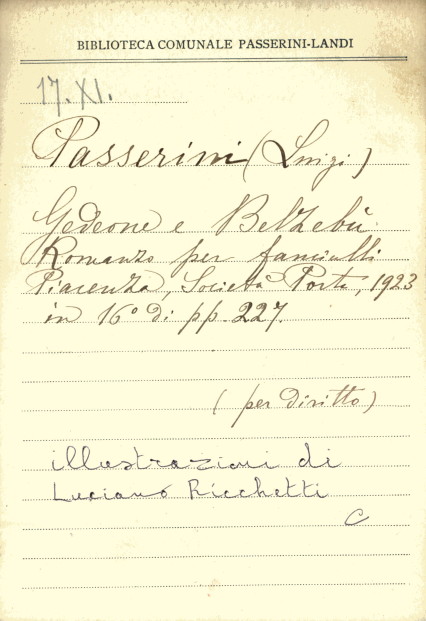 BIBLIOTECA COMUNALE PASSERINI-LANDI
17.XI.
Passerini (Luigi)
Gedeone e Belzebù
Romanzo per fanciulli
Piacenza, Società Porta, 1923
in 16° di pp. 227.
(per diritto)
illustrazioni di
Luciano Ricchetti
C